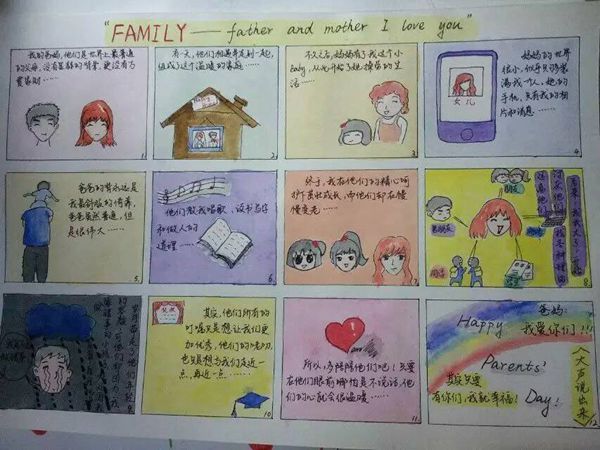 "FAMILY——father and mother I love you"
我的爸妈,他们是世界上最普通
的父母,没有显赫的背景,更没有万
贯家财……
1.
有一天,他们相遇并走到一起,
组成了这个温暖的家庭……
Happy
2.
不久之后,妈妈有了我这个小
baby,从此开始了她操劳的生
活……
3.
妈妈的世界
很小,似乎只够装
满我一个人,她的
手机,只有我的相
片和消息……
女儿
4.
爸爸的背永远是
我最舒服的倚靠,
爸爸虽然普通,但
是很伟大……
5.
他们教我唱歌、读书写字
和做人的
道理……
6.
终于,我在他们的精心呵
护下茁壮成长,而他们却在慢
慢变老……
7.
朋友
男朋友
同学
8.
9.
奖状
其实,他们所有的
叮嘱只是想让我们更
加优秀,他们的唠叨,
也只是想与我们走近一
点,再近一点……
10.
所以,多陪陪他们吧!只要
在他们眼前哪怕是不说话,他
们的心就会很温暖……
11.
Happy
Parents'
Day!
爸妈:
我爱你们!!!
(大声说出来)
其实只要
有你们,我就幸福!
12.